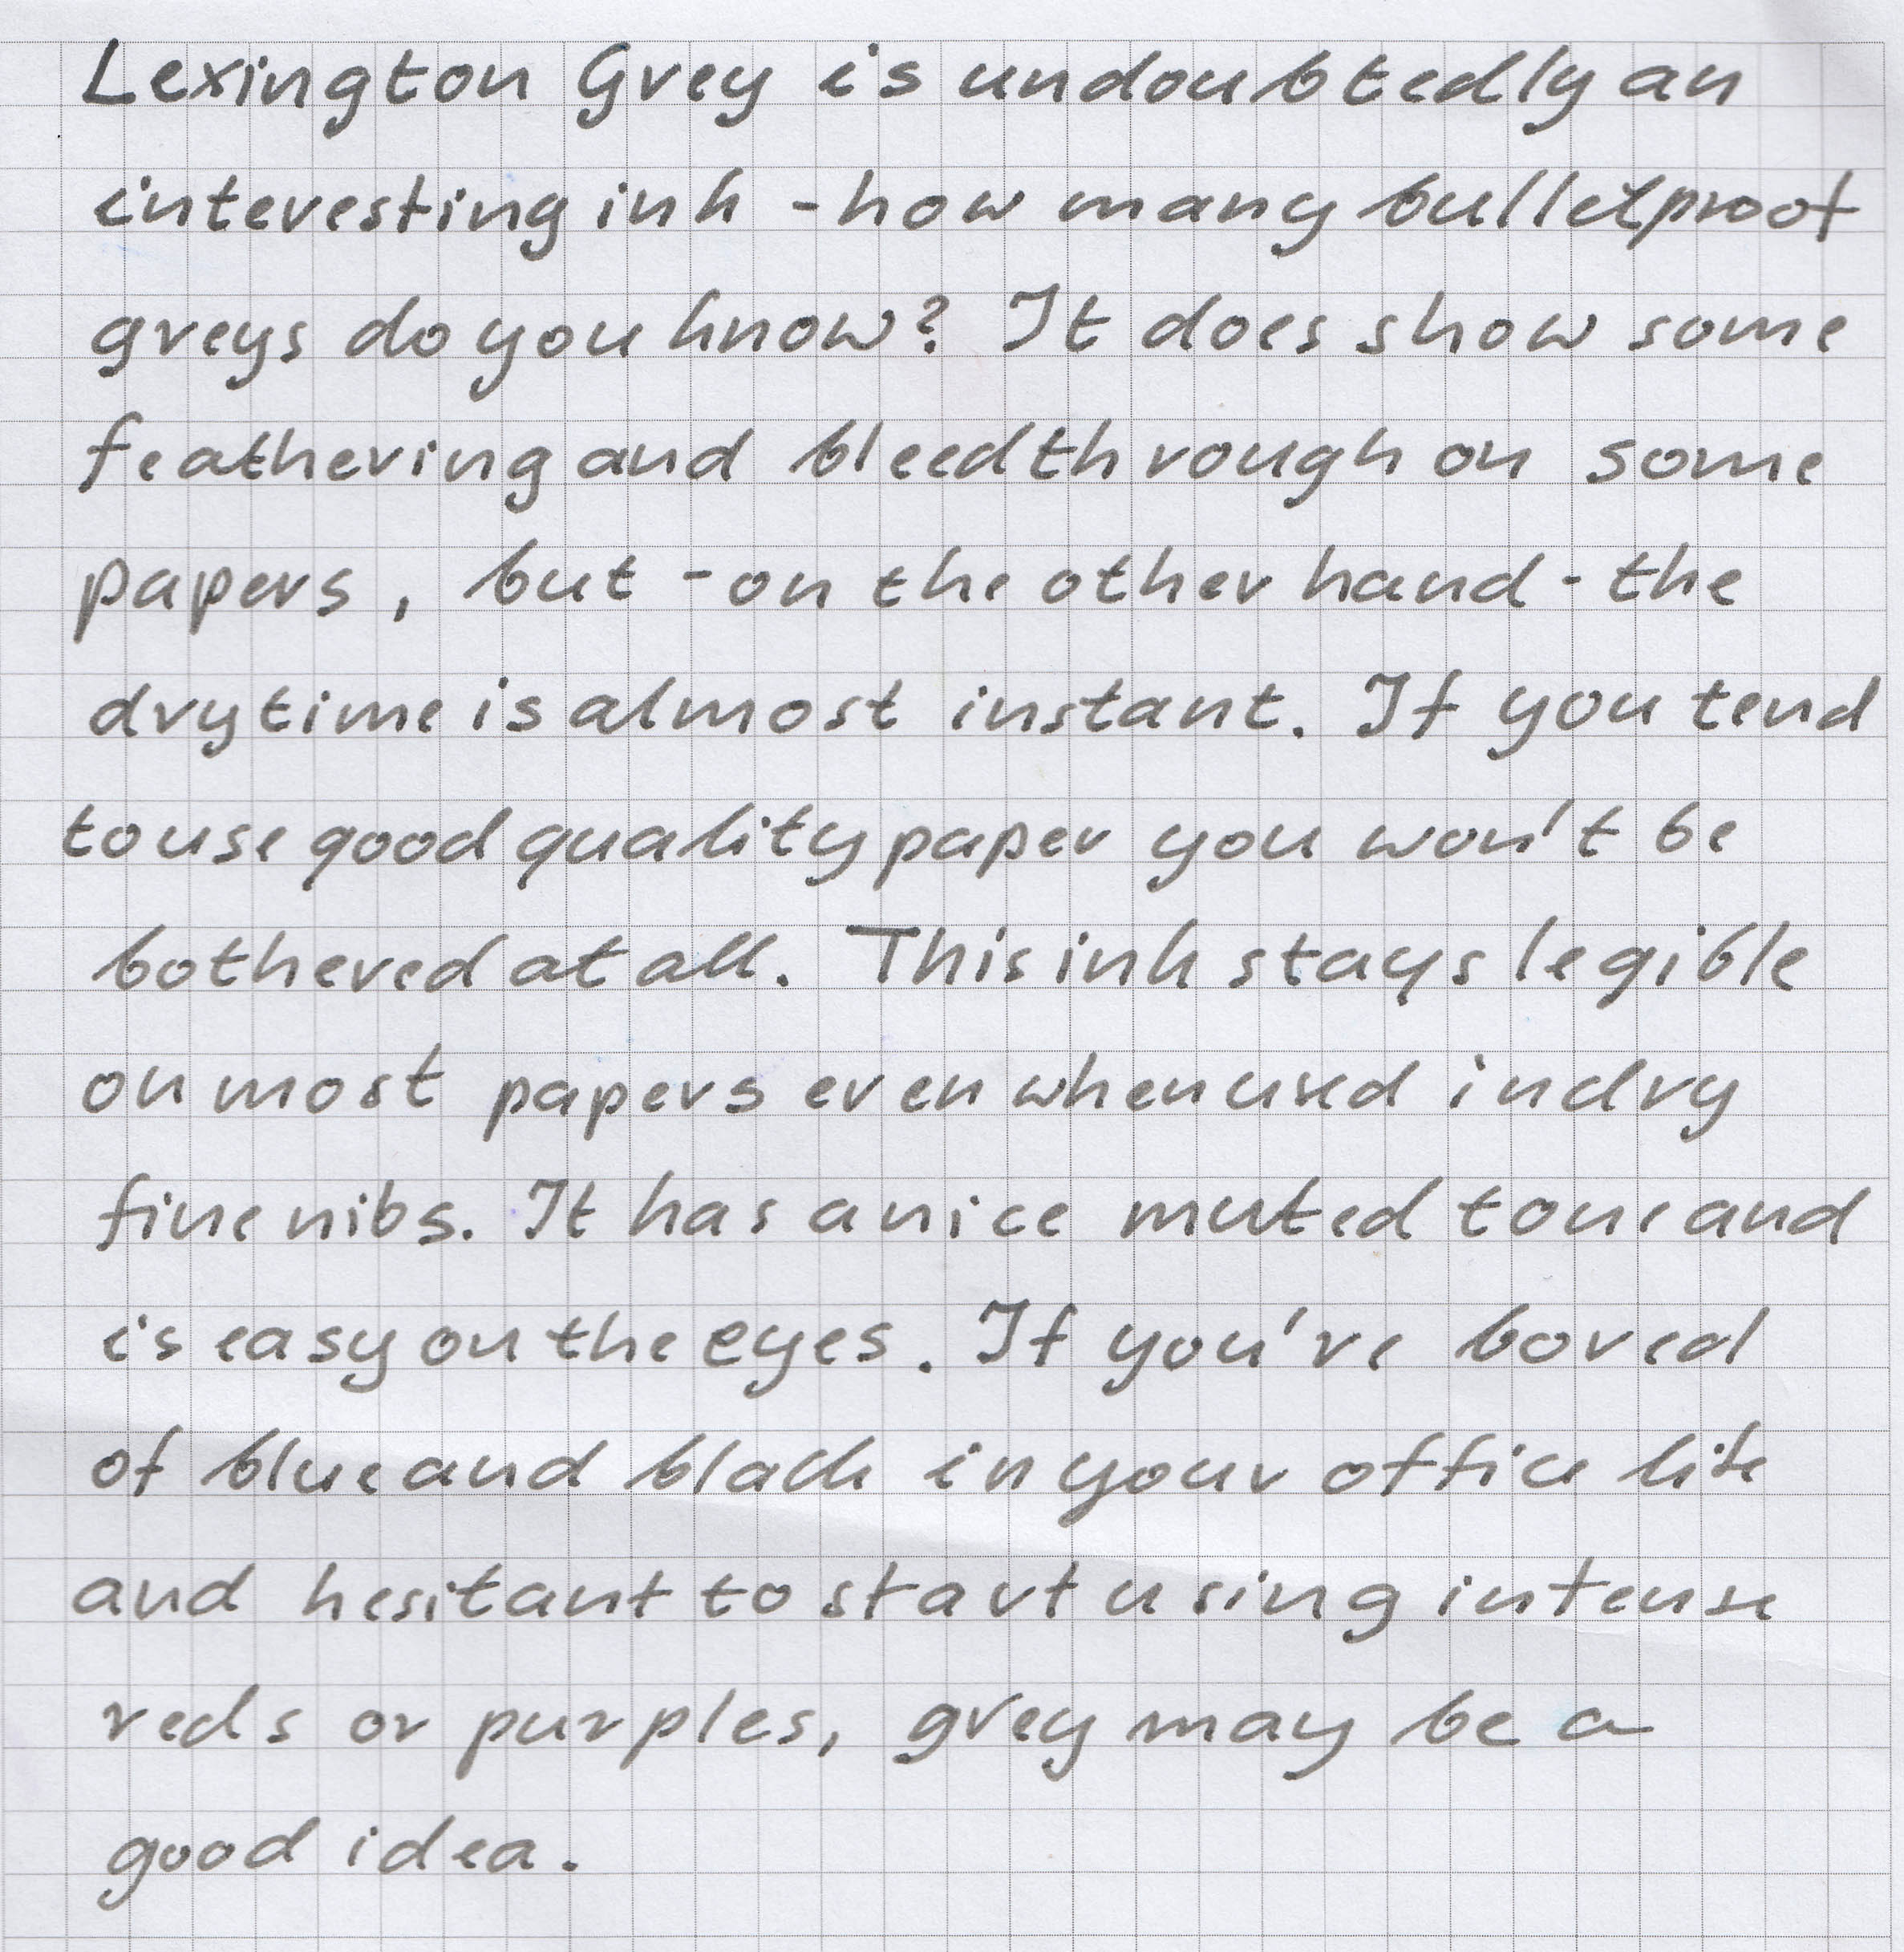 Lexington Grey is undoubtedly an
interesting ink - how many bulletproof
greys do you know? It does show some
feathering and bleedthrough on some
papers, but - on the other hand - the
dry time is almost instant. If you tend
to use good quality paper you won't be
bothered at all. This ink stays legible
on most papers even when used in dry
fine nibs. It has a nice muted tone and
is easy on the eyes. If you're bored
of blue and black in your office life
and hesitant to start using intense
reds or purples, grey may be a
good idea.